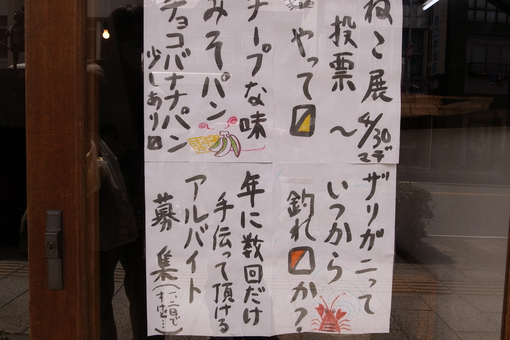 ねこ展
投票 〜 4/30マデ
やって〼
チープな味
みそパン
チョコバナナパン
少しあり〼
ザリガニって
いつから
釣れ〼か?
年に数回だけ
手伝って頂ける
アルバイト
募集